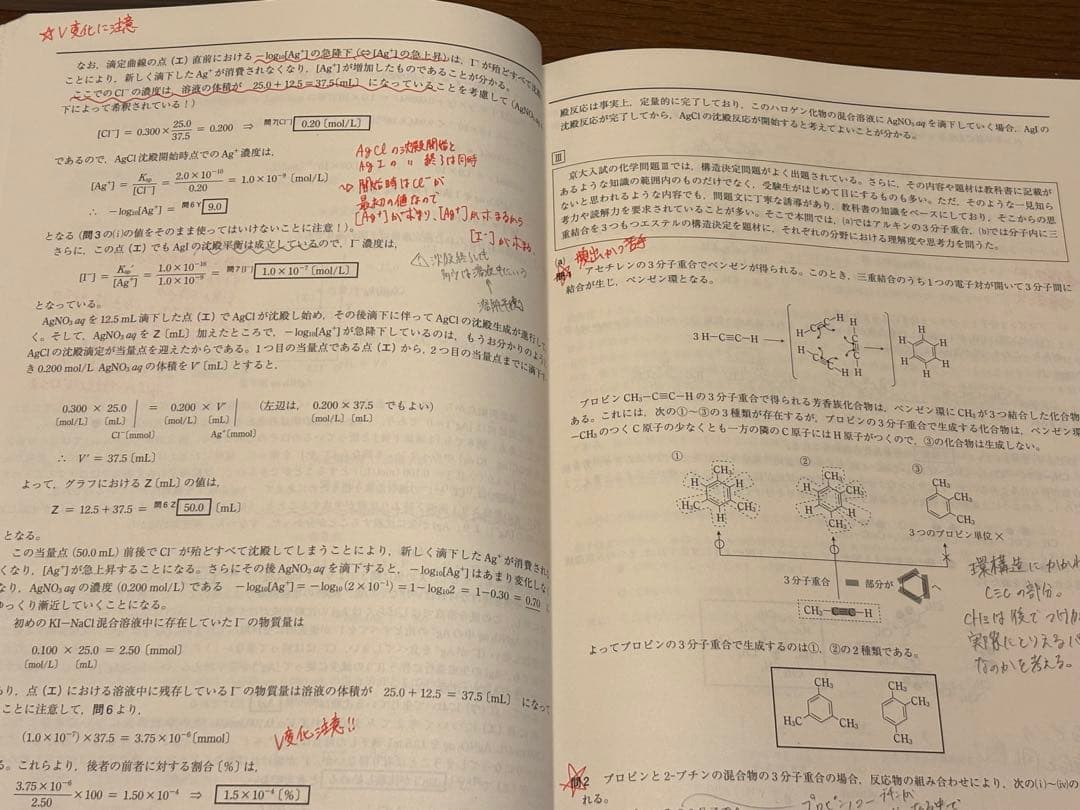 ☆V変化に注意
なお,滴定曲線の点(エ)直前における −log₁₀[Ag⁺]の急降下(⇔[Ag⁺]の急上昇)は,I⁻が殆どすべて沈殿
ことにより,新しく滴下したAg⁺が消費されなくなり,[Ag⁺]が増加したものであることが分かる。
ここでのCl⁻の濃度は,溶液の体積が 25.0+12.5=37.5[mL] になっていることを考慮して(AgNO₃
下によって希釈されている!)
[Cl⁻]=0.300×25.0/37.5=0.200 ⇒ 問7[Cl⁻] 0.20 [mol/L]
であるので,AgCl沈殿開始時点でのAg⁺濃度は,
[Ag⁺]=Ksp/[Cl⁻]=2.0×10⁻¹⁰/0.20=1.0×10⁻⁹(mol/L)
∴ −log₁₀[Ag⁺]=問6Y 9.0
AgClの沈殿開始と
AgIの 〃 終了は同時
開始時はCl⁻が
最初の値なので
[Ag⁺]が求まり,[Ag⁺]が求まるから
[I⁻]が求まる。
となる(問3の(i)の値をそのまま使ってはいけないことに注意!)。
さらに,この点(エ)でもAgIの沈殿平衡は成立しているので,I⁻濃度は,
[I⁻]=Ksp'/[Ag⁺]=1.0×10⁻¹⁶/1.0×10⁻⁹=問7[I⁻] 1.0×10⁻⁷[mol/L]
となっている。
AgNO₃ aqを12.5 mL滴下した点(エ)でAgClが沈殿し始め,その後滴下に伴ってAgClの沈殿生成が進行して
く。そして,AgNO₃ aqをZ[mL]加えたところで,−log₁₀[Ag⁺]が急降下しているのは,もうお分かりのように
AgClの沈殿滴定が当量点を迎えたからである。1つ目の当量点である点(エ)から,2つ目の当量点までに滴下
き0.200 mol/L AgNO₃ aqの体積をV'[mL]とすると,
0.300 × 25.0 | = 0.200 × V' | (左辺は,0.200×37.5 でもよい)
[mol/L] [mL] | [mol/L] [mL] | [mol/L] [mL]
Cl⁻[mmol] Ag⁺[mmol]
∴ V'=37.5[mL]
よって,グラフにおけるZ[mL]の値は,
Z=12.5+37.5=問6Z 50.0 [mL]
となる。
この当量点(50.0 mL)前後でCl⁻が殆どすべて沈殿してしまうことにより,新しく滴下したAg⁺が消費され
くなり,[Ag⁺]が急上昇することになる。さらにその後AgNO₃ aqを滴下すると,−log₁₀[Ag⁺]はあまり変化しな
なり,AgNO₃ aqの濃度(0.200 mol/L)である −log₁₀[Ag⁺]=−log₁₀(2×10⁻¹)=1−log₁₀2=1−0.30=0.70
ゆっくり漸近していくことになる。
初めのKI−NaCl混合溶液中に存在していたI⁻の物質量は
0.100 × 25.0=2.50 [mmol]
[mol/L] [mL]
り,点(エ)における溶液中に残存しているI⁻の物質量は溶液の体積が 25.0+12.5=37.5[mL] になって
ことに注意して,問6より,
(1.0×10⁻⁷)×37.5=3.75×10⁻⁶[mmol]
V変化注意!!
る。これらより,後者の前者に対する割合[%]は,
3.75×10⁻⁶/2.50×100=1.50×10⁻⁴ ⇒ 1.5×10⁻⁴[%]
殿反応は事実上,定量的に完了しており,このハロゲン化物の混合溶液にAgNO₃ aqを滴下していく場合,AgIの
沈殿反応が完了してから,AgClの沈殿反応が開始すると考えてよいことが分かる。
Ⅲ
京大入試の化学問題Ⅲでは,構造決定問題がよく出題されている。さらに,その内容や題材は教科書に記載が
あるような知識の範囲内のものだけでなく,受験生がはじめて目にするものも多い。ただ,そのような一見知ら
ないと思われるような内容でも,問題文に丁寧な誘導があり,教科書の知識をベースにしており,そこからの思
考力や読解力を要求されていることが多い。そこで本問では,(a)ではアルキンの3分子重合,(b)では分子内に三
重結合を3つもつエステルの構造決定を題材に,それぞれの分野における理解度や思考力を問うた。
(a)
頻出かつ苦手
問1 アセチレンの3分子重合でベンゼンが得られる。このとき,三重結合のうち1つの電子対が開いて3分子間に
結合が生じ,ベンゼン環となる。
3 H−C≡C−H
プロピンCH₃−C≡C−Hの3分子重合で得られる芳香族化合物は,ベンゼン環にCH₃が3つ結合した化合物
ある。これには,次の①〜③の3種類が存在するが,プロピンの3分子重合で生成する化合物は,ベンゼン環
−CH₃のつくC原子の少なくとも一方の隣のC原子にはH原子がつくので,③の化合物は生成しない。
① ② ③
CH₃ H H H₃C CH₃ H
CH₃ H CH₃ H H CH₃
CH₃ CH₃ CH₃
3つのプロピン単位×
3分子重合 部分が へ
CH₃−C≡C−H
環構造にかかわ
C≡Cの部分。
CH₃は後でつけ
実際にとりえる
なのかを考える。
よってプロピンの3分子重合で生成するのは①,②の2種類である。
CH₃ H₃C CH₃
CH₃ CH₃ CH₃
問2 プロピンと2-ブチンの混合物の3分子重合の場合,反応物の組み合わせにより,次の(i)〜(iv)の
れる。